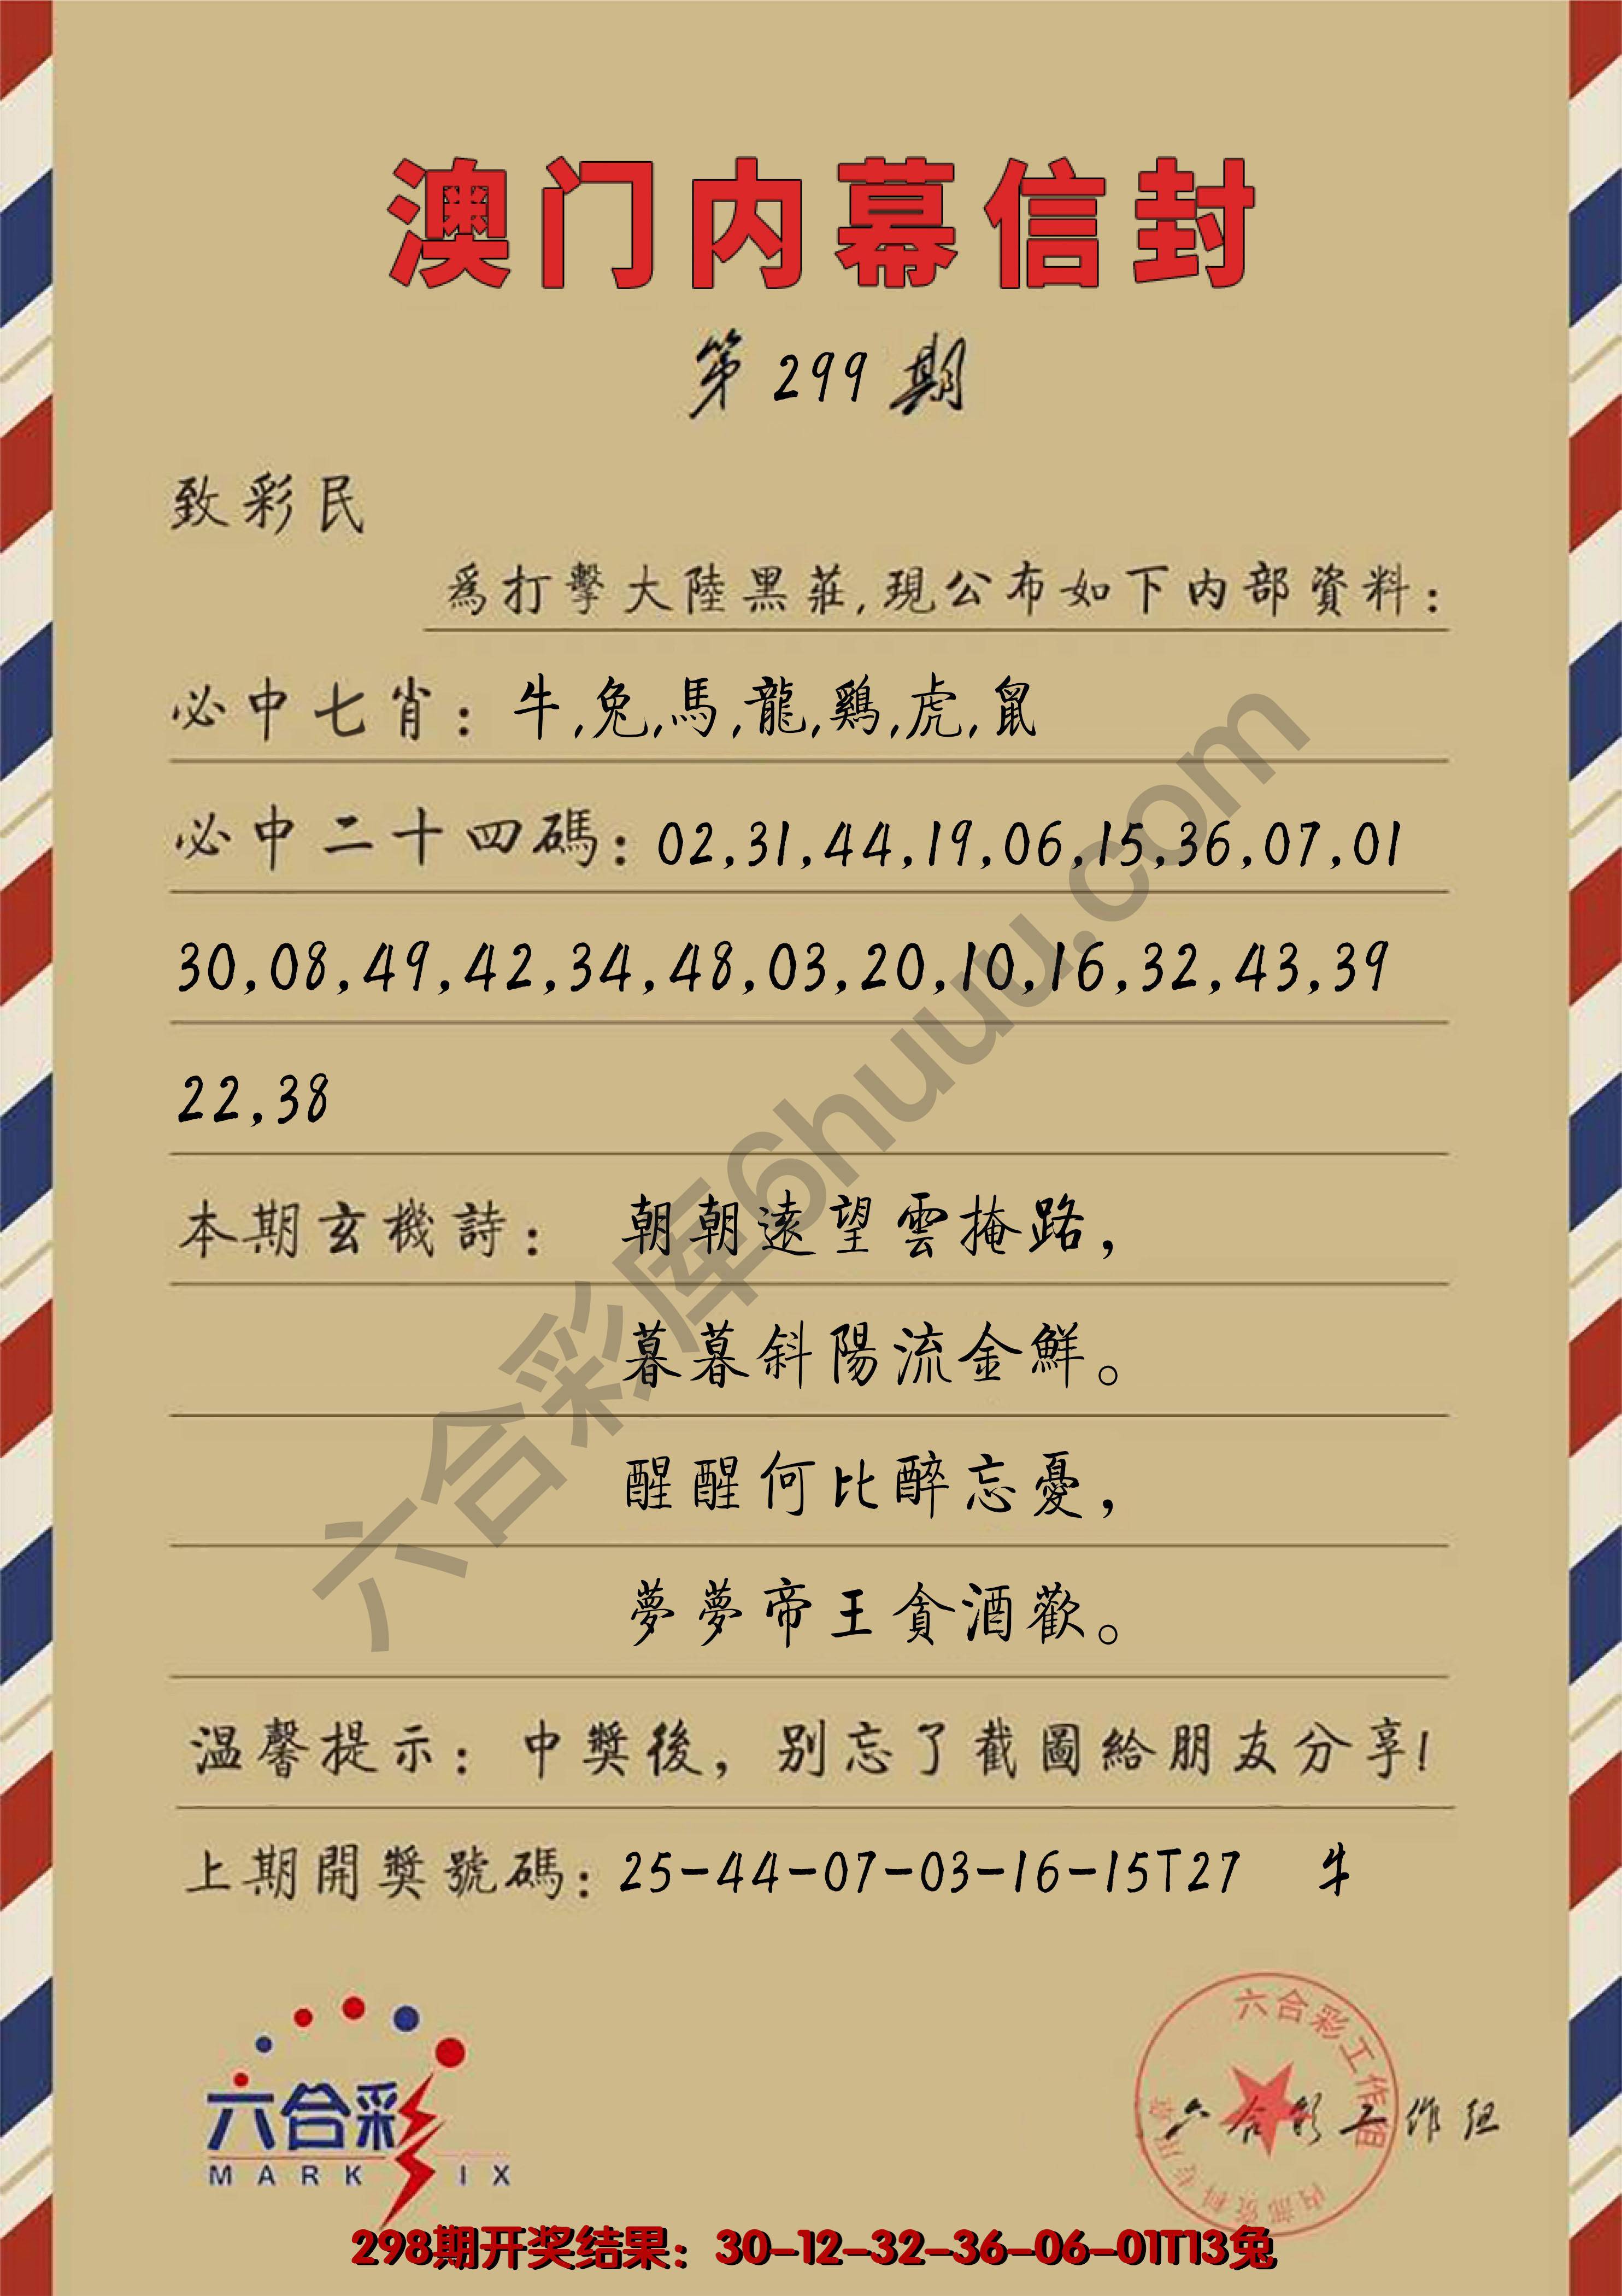 澳门内幕信封
第299期
致彩民
爲打擊大陸黑莊,現公布如下内部資料:
必中七肖:牛,兔,馬,龍,鷄,虎,鼠
必中二十四碼:02,31,44,19,06,15,36,07,01
30,08,49,42,34,48,03,20,10,16,32,43,39
22,38
本期玄機詩: 朝朝遠望雲掩路,
暮暮斜陽流金鮮。
醒醒何比醉忘憂,
夢夢帝王貪酒歡。
温馨提示:中獎後,别忘了截圖給朋友分享!
上期開獎號碼:25-44-07-03-16-15T27 牛
六合彩库6huuu.com
六合彩
MARK IX
六合彩工作组
内部资料专用章
六合彩工作组
298期开奖结果:30-12-32-36-06-01T13兔